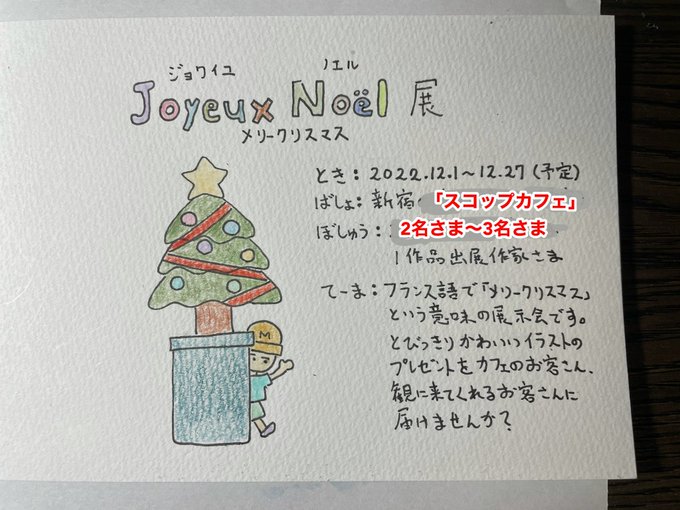 ジョワイユ ノエル
Joyeux Noël 展
メリークリスマス
とき：2022.12.1～12.27（予定）
ばしょ：新宿「スコップカフェ」
ぼしゅう：2名さま～3名さま
1作品出展作家さま
てーま：フランス語で「メリークリスマス」
という意味の展示会です。
とびっきりかわいいイラストの
プレゼントをカフェのお客さん、
観に来てくれるお客さんに
届けませんか？
M